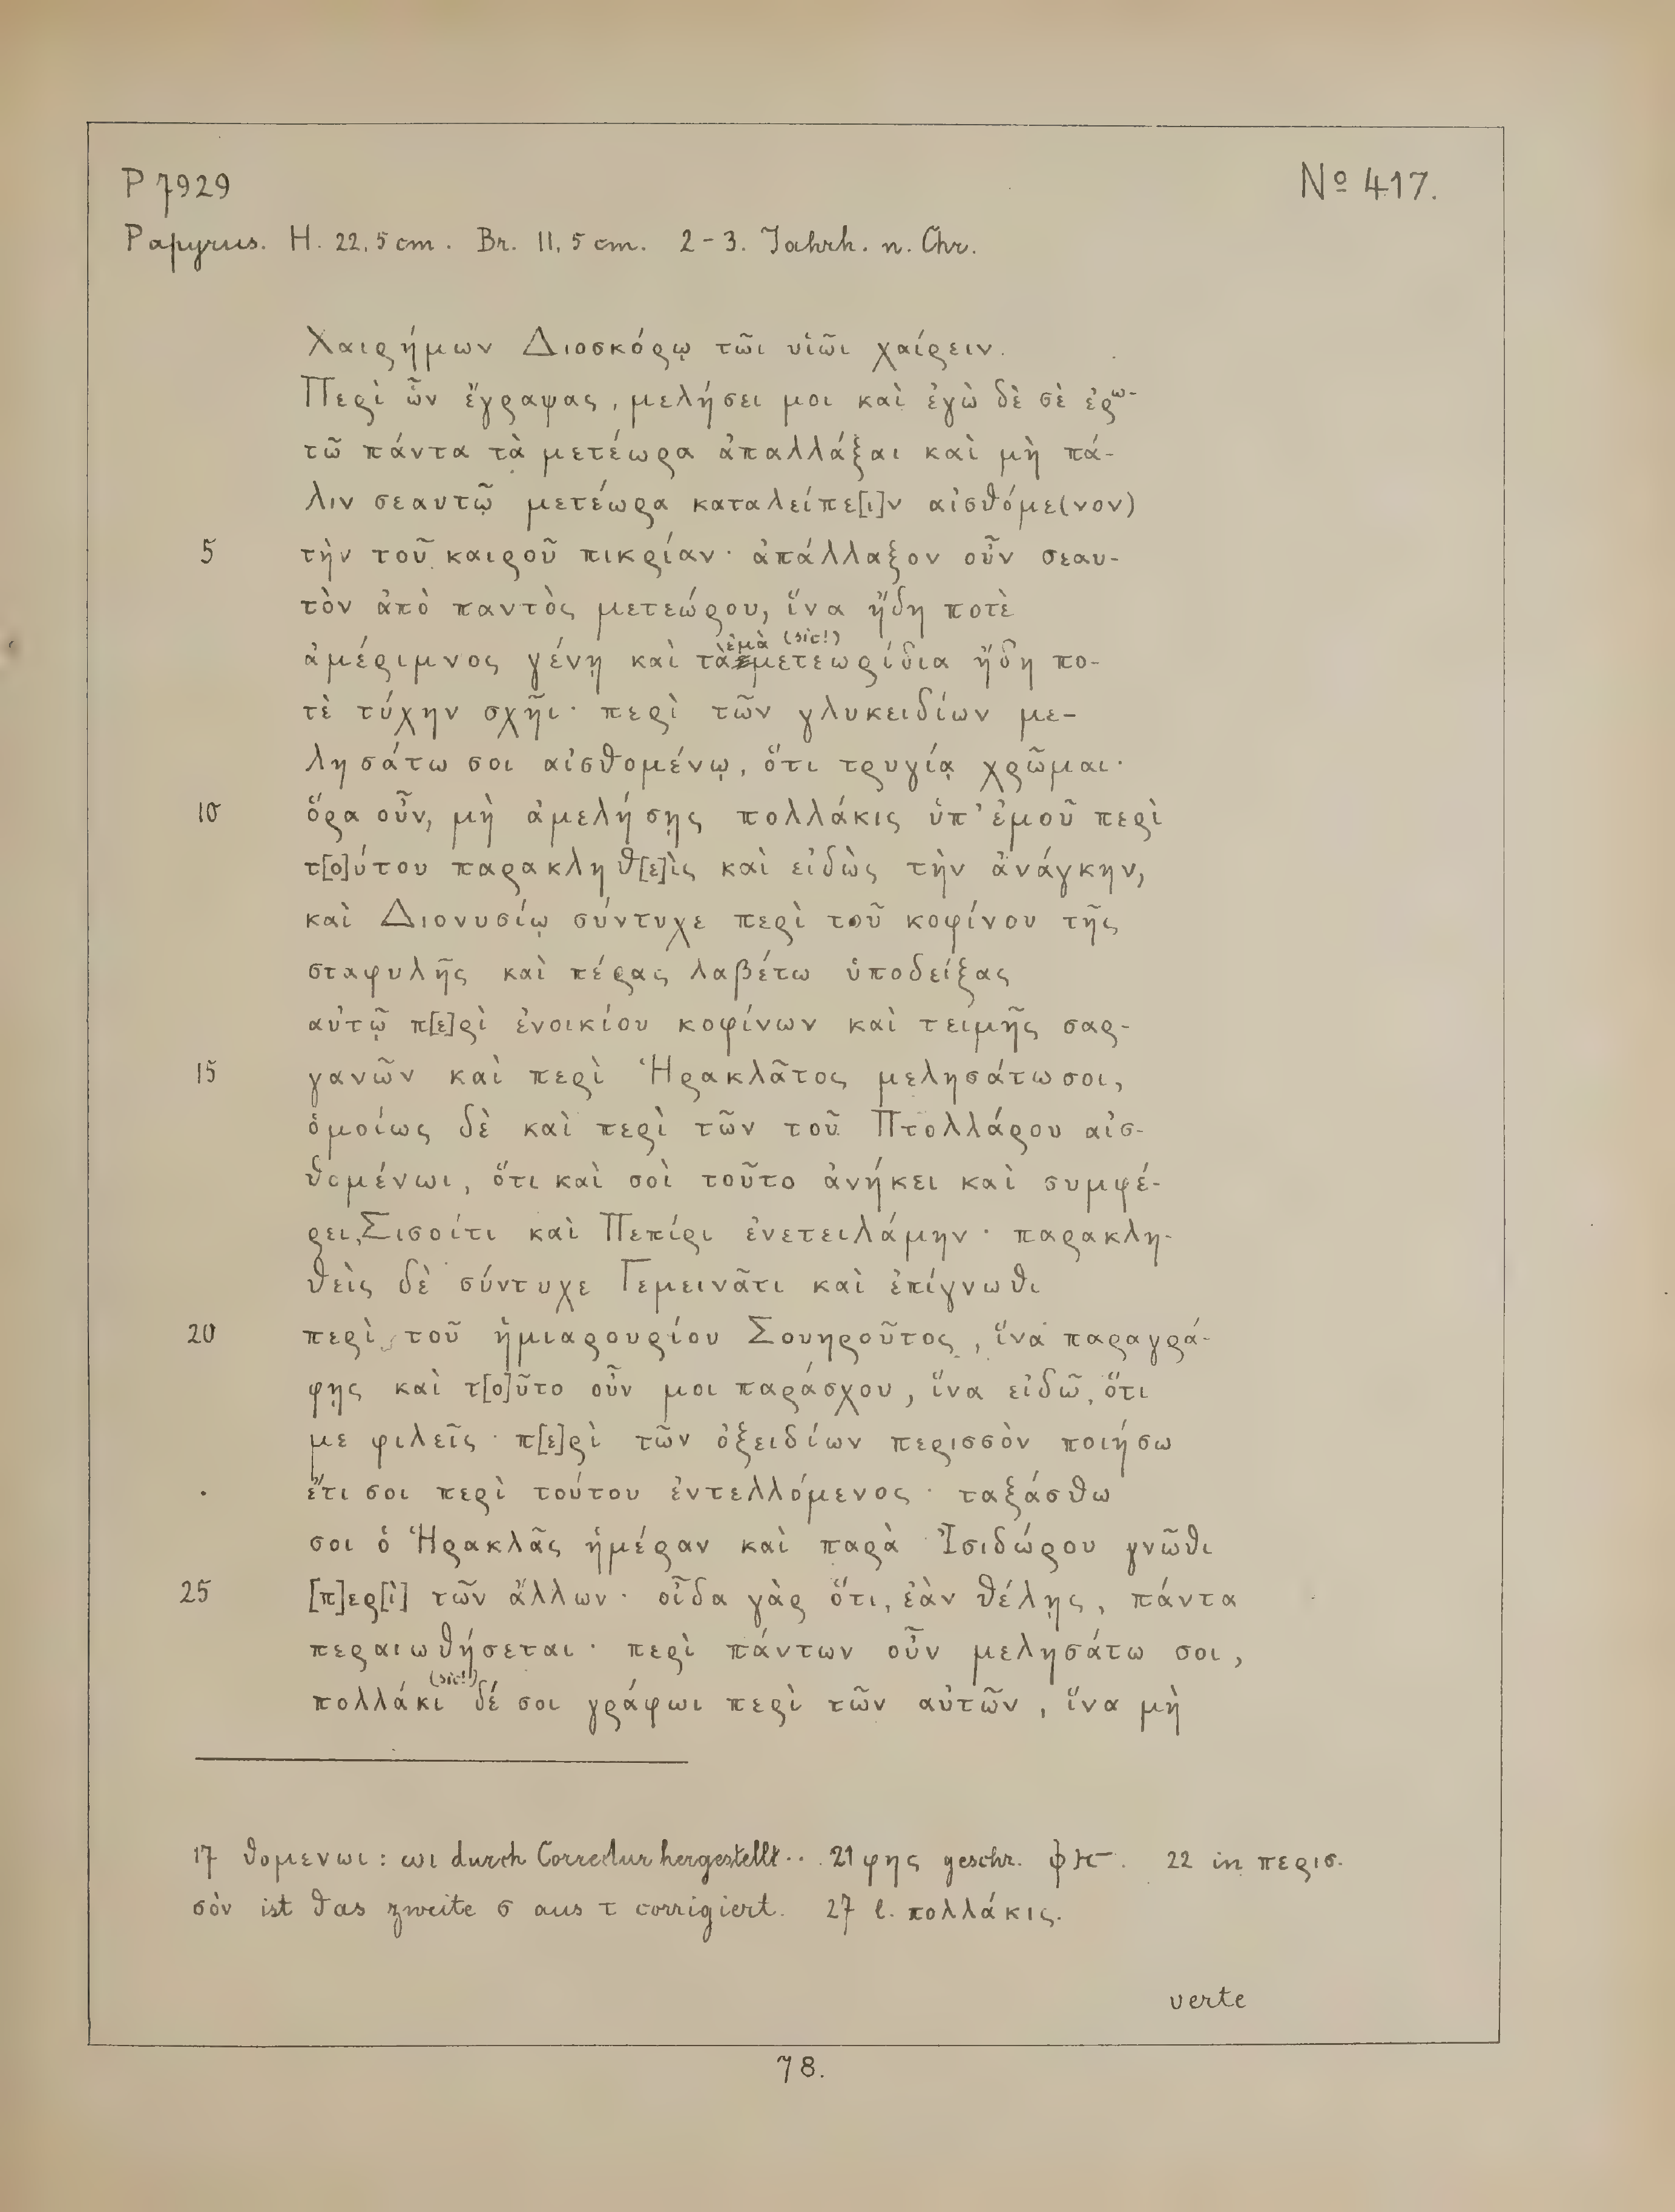 P 7929
Nº 417.
Papyrus. H. 22,5 cm. Br. 11,5 cm. 2-3. Jahrh. n. Chr.
Χαιρήμων Διοσκόρῳ τῶι υἱῶι χαίρειν.
Περὶ ὧν ἔγραψας, μελήσει μοι καὶ ἐγὼ δὲ σὲ ἐρω-
τῶ πάντα τὰ μετέωρα ἀπαλλάξαι καὶ μὴ πά-
λιν σεαυτῷ μετέωρα καταλείπε[ι]ν αἰσθόμε(νον)
5 τὴν τοῦ καιροῦ πικρίαν· ἀπάλλαξον οὖν σεαυ-
τὸν ἀπὸ παντὸς μετεώρου, ἵνα ἤδη ποτὲ
ἐμὰ (sic!)
ἀμέριμνος γένῃ καὶ τὰ μετεωρίδια ἤδη πο-
τὲ τύχην σχῆι· περὶ τῶν γλυκειδίων με-
λησάτω σοι αἰσθομένῳ, ὅτι τρυγίᾳ χρῶμαι·
10 ὅρα οὖν, μὴ ἀμελήσῃς πολλάκις ὑπ' ἐμοῦ περὶ
τ[ο]ύτου παρακληθ[ε]ὶς καὶ εἰδὼς τὴν ἀνάγκην,
καὶ Διονυσίῳ σύντυχε περὶ τοῦ κοφίνου τῆς
σταφυλῆς καὶ πέρας λαβέτω ὑποδείξας
αὐτῷ π[ε]ρὶ ἐνοικίου κοφίνων καὶ τειμῆς σαρ-
15 γανῶν καὶ περὶ Ἡρακλᾶτος μελησάτω σοι,
ὁμοίως δὲ καὶ περὶ τῶν τοῦ Πτολλάρου αἰσ-
θομένωι, ὅτι καὶ σοὶ τοῦτο ἀνήκει καὶ συμφέ-
ρει, Σισοίτι καὶ Πεπίρι ἐνετειλάμην· παρακλη-
θεὶς δὲ σύντυχε Γεμεινᾶτι καὶ ἐπίγνωθι
20 περὶ τοῦ ἡμιαρουρίου Σουηροῦτος, ἵνα παραγρά-
φῃς καὶ τ[ο]ῦτο οὖν μοι παράσχου, ἵνα εἰδῶ, ὅτι
με φιλεῖς· π[ε]ρὶ τῶν ὀξειδίων περισσὸν ποιήσω
ἔτι σοι περὶ τούτου ἐντελλόμενος· ταξάσθω
σοι ὁ Ἡρακλᾶς ἡμέραν καὶ παρὰ Ἰσιδώρου γνῶθι
25 [π]ερ[ὶ] τῶν ἄλλων· οἶδα γὰρ ὅτι, ἐὰν θέλῃς, πάντα
περαιωθήσεται· περὶ πάντων οὖν μελησάτω σοι,
(sic!)
πολλάκι δέ σοι γράφωι περὶ τῶν αὐτῶν, ἵνα μὴ
17 θομενωι: ωι durch Correctur hergestellt. 21 φης geschr. 22 in περισ-
σὸν ist das zweite σ aus τ corrigiert. 27 l. πολλάκις.
verte
78.